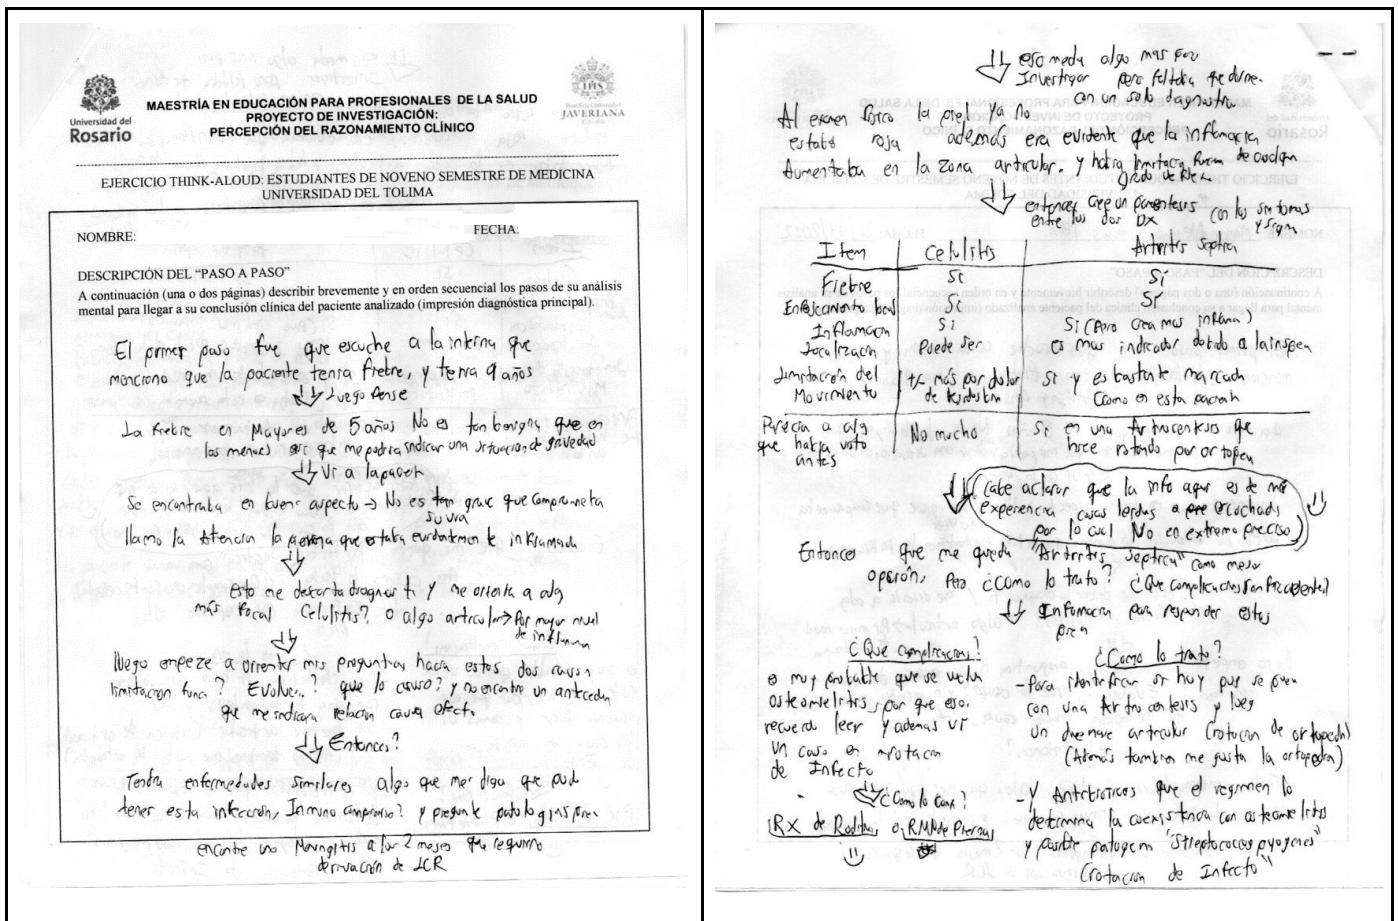 Universidad del
Rosario
MAESTRÍA EN EDUCACIÓN PARA PROFESIONALES DE LA SALUD
PROYECTO DE INVESTIGACIÓN:
PERCEPCIÓN DEL RAZONAMIENTO CLÍNICO
Pontificia Universidad
JAVERIANA
EJERCICIO THINK-ALOUD: ESTUDIANTES DE NOVENO SEMESTRE DE MEDICINA
UNIVERSIDAD DEL TOLIMA
NOMBRE: FECHA:
DESCRIPCIÓN DEL “PASO A PASO”
A continuación (una o dos páginas) describir brevemente y en orden secuencial los pasos de su análisis
mental para llegar a su conclusión clínica del paciente analizado (impresión diagnóstica principal).
El primer paso fue que escuche a la interna que
menciono que la paciente tenia fiebre, y tenia 9 años
Luego Pense
La fiebre en Mayores de 5 años No es tan benigna que en
los menores que me podria indicar una situacion de gravedad
Vi a la paciente
Se encontraba en buen aspecto → No es tan grave que comprometa
su vida
llamo la Atencion la pierna que estaba evidentemente inflamada
Esto me descarta diagnosti y me orienta a algo
más focal Celulitis? o algo articular → Por mayor nivel
de inflama
luego empeze a orientar mis preguntas hacia estos dos causas
limitacion funci? Evoluci..? que lo causo? y no encontre un anteceden
que me indicara relacion causa efecto
Entonces?
Tendra enfermedades similares algo que me diga que pudo
tener esta infección, Inmuno compromiso? y pregunte patologias prev.
encontre una Meningitis a los 2 meses que requirio
derivación de LCR
eso me da algo mas por
Investigar pero faltaba quedarme
con un solo diagnostico
Al examen fisico la piel ya no
estaba roja además era evidente que la inflamacion
Aumentaba en la zona articular. y habia limitacion funcion de cualquier
grado de flex
entonces cree un parentesis
entre los dos DX con los sintomas
y signos
Item Celulitis Artritis septica
Fiebre Si Si
Enrojecimiento local Si Si
Inflamacion Si Si (Pero crea mas inflama)
Localización Puede ser es mas indicador debido a la inspeci
Limitación del +/- más por dolor Si y es bastante marcada
Movimiento de tejidos bla (como en esta paciente
Parecia a alg No mucho Si en una Artrocentesis que
que habia visto hice rotando por ortopedi
antes
Cabe aclarar que la info aqui es de mi
experiencia cosas leidas o escuchadas
por lo cual No en extremo preciso
Entonces que me queda "Artritis septica" como mejor
opción, Pero ¿Como lo trato? ¿Que complicaciones son frecuentes?
Infomacion para responder estas
pren
¿Que complicaciones? ¿Como lo trato?
es muy probable que se vuelva
osteomielitis, por que eso.
recuerdo leer y ademas vi
un caso en mi rotacion
de Infecto
¿Como lo conf?
RX de Rodillas o RMN de Piernas
- Para identificar si hay pus se puen
con una Artrocentesis y luego
un drenaje articular (rotacion de ortopedia)
(Además tambien me gusta la ortopedia)
- Y Antibioticos que el regimen lo
determina la coexistencia con osteomielitis
y posible patogeno "Streptococcus pyogenes"
(rotacion de Infecto")